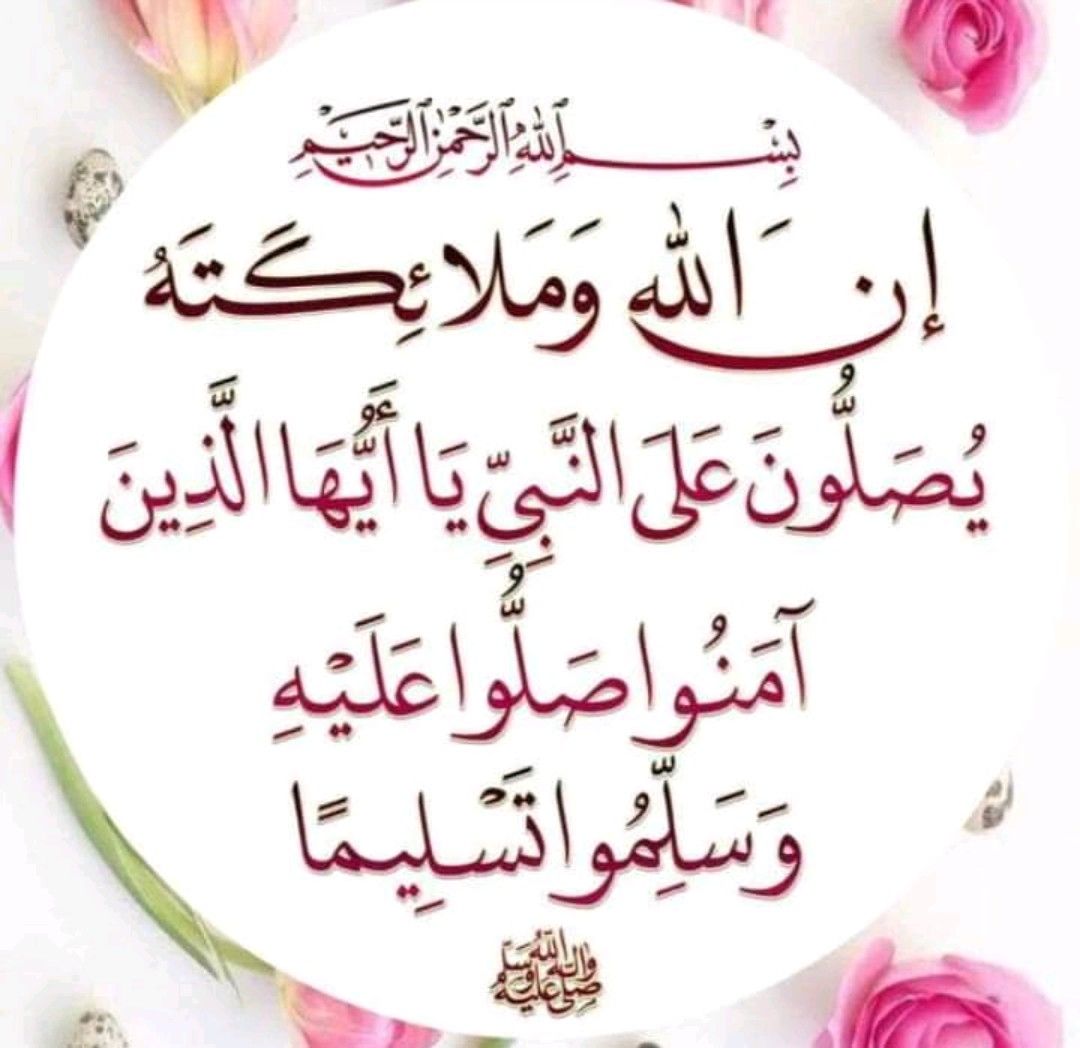 بِسْمِ ٱللَّهِ ٱلرَّحْمَٰنِ ٱلرَّحِيمِ
إن َالله وَمَلائِكَتَهُ
يُصَلُّونَ عَلَى النَّبِيِّ يَا أَيُّهَا الَّذِينَ
آمَنُوا صَلُّوا عَلَيْهِ
وَسَلِّمُوا تَسْلِيمًا
صلى الله عليه وآله وسلم